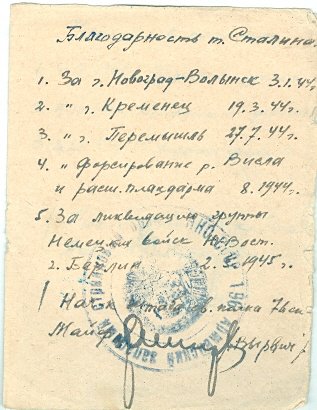 Благодарность т. Сталина.
1. За г. Новоград-Волынск 3.1.44г.
2. " г. Кременец 19.3.44г.
3. " г. Перемышль 27.7.44г.
4. " форсирование р. Висла
и расш. плацдарма 8.1944г.
5. За ликвидацию группы
Немецких войск Ю.Вост.
г. Берлин 2. 1945г.
Майор